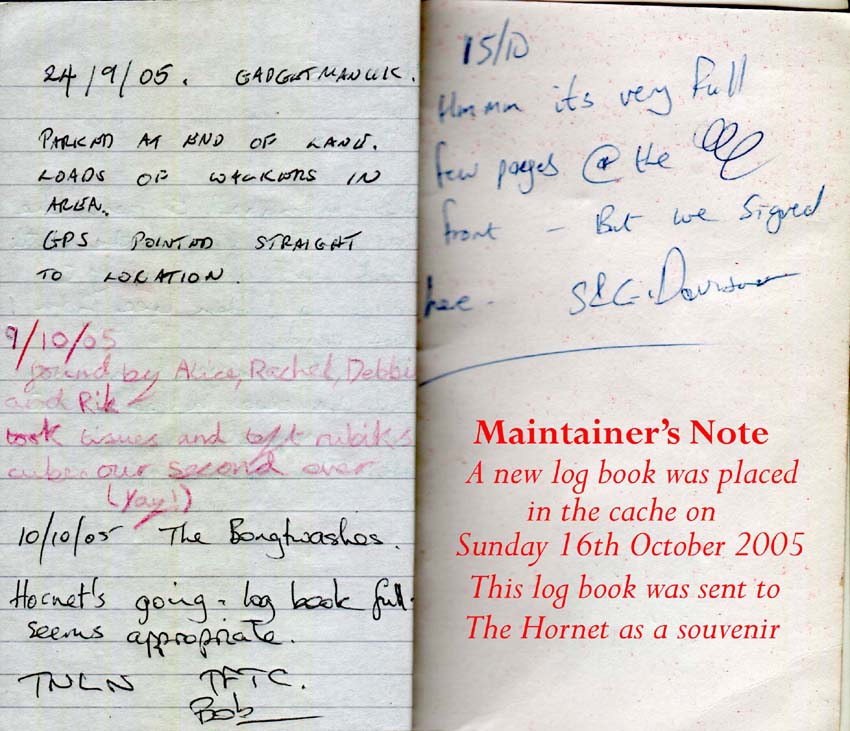 24/9/05. GADGETMANUK.
PARKED AT END OF LANE.
LOADS OF WALKERS IN
AREA.
GPS POINTED STRAIGHT
TO LOCATION.
9/10/05
found by Alice, Rachel, Debbie
and Rik
took tissues and left rubiks
cube. our second ever
(Yay!)
10/10/05 The Bongtwashes.
Hornet's going - log book full.
seems appropriate.
TNLN TFTC.
Bob
15/10
Hmmm its very full
few pages @ the
front - But we signed
here. S&G.
Maintainer's Note
A new log book was placed
in the cache on
Sunday 16th October 2005
This log book was sent to
The Hornet as a souvenir